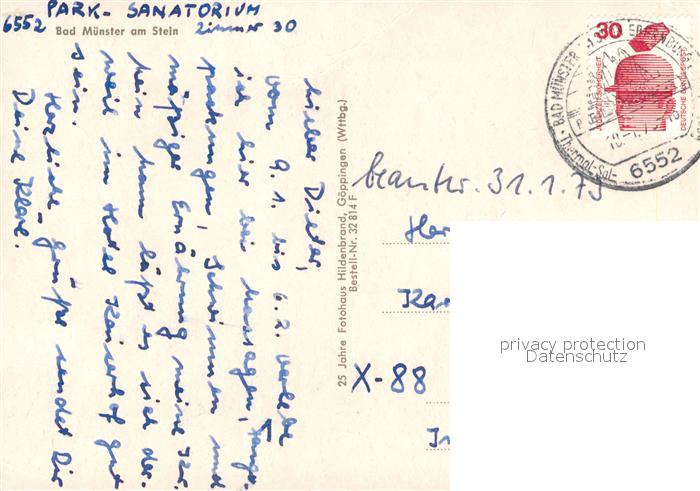 PARK- SANATORIUM
6552 Zimmer 30
Bad Münster am Stein
Lieber Dieter,
vom 9.1. bis 6.2. verlebe
ich hier bei Massagen, Fango-
packungen, Schwimmen und
mäßiger Ernährung meine Kur.
Mein Mann läßt es sich der-
weil im Hotel Kaiserhof gut
sein.
Herzliche Grüße sendet Dir
Deine
25 Jahre Fotohaus Hildenbrand, Göppingen (Wttbg.)
Bestell-Nr. 32 814 F
beantw. 31.1.73
Her
Kar
X-88
30
DEUTSCHE BUNDESPOST
BAD MÜNSTER
Thermal-Sol-
6552
privacy protection
Datenschutz